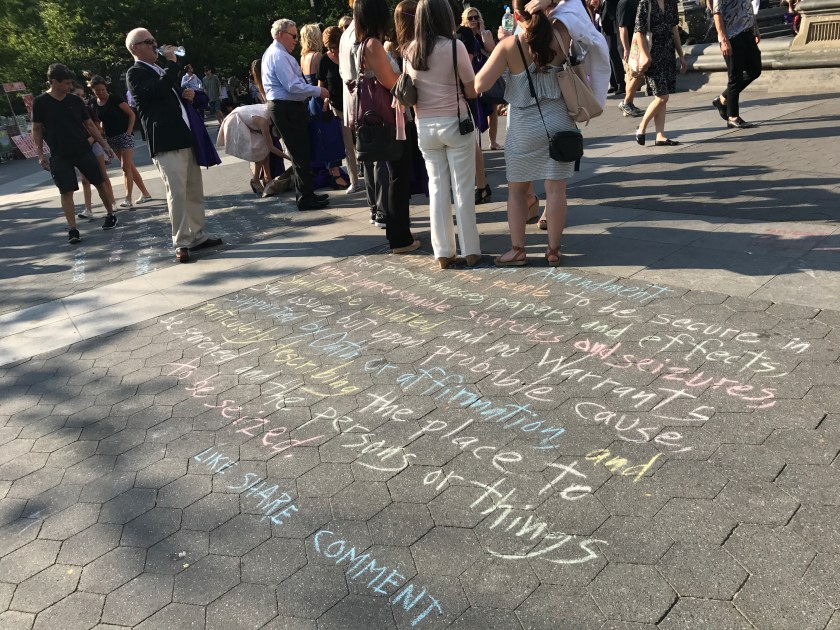 Amendment
people to be secure in
their persons houses papers and effects,
unreasonable searches and seizures,
shall not be violated and no Warrants
shall issue, but upon probable cause,
supported by Oath or affirmation, and
particularly describing the place to
be searched and the persons or things
to be seized.
LIKE SHARE COMMENT